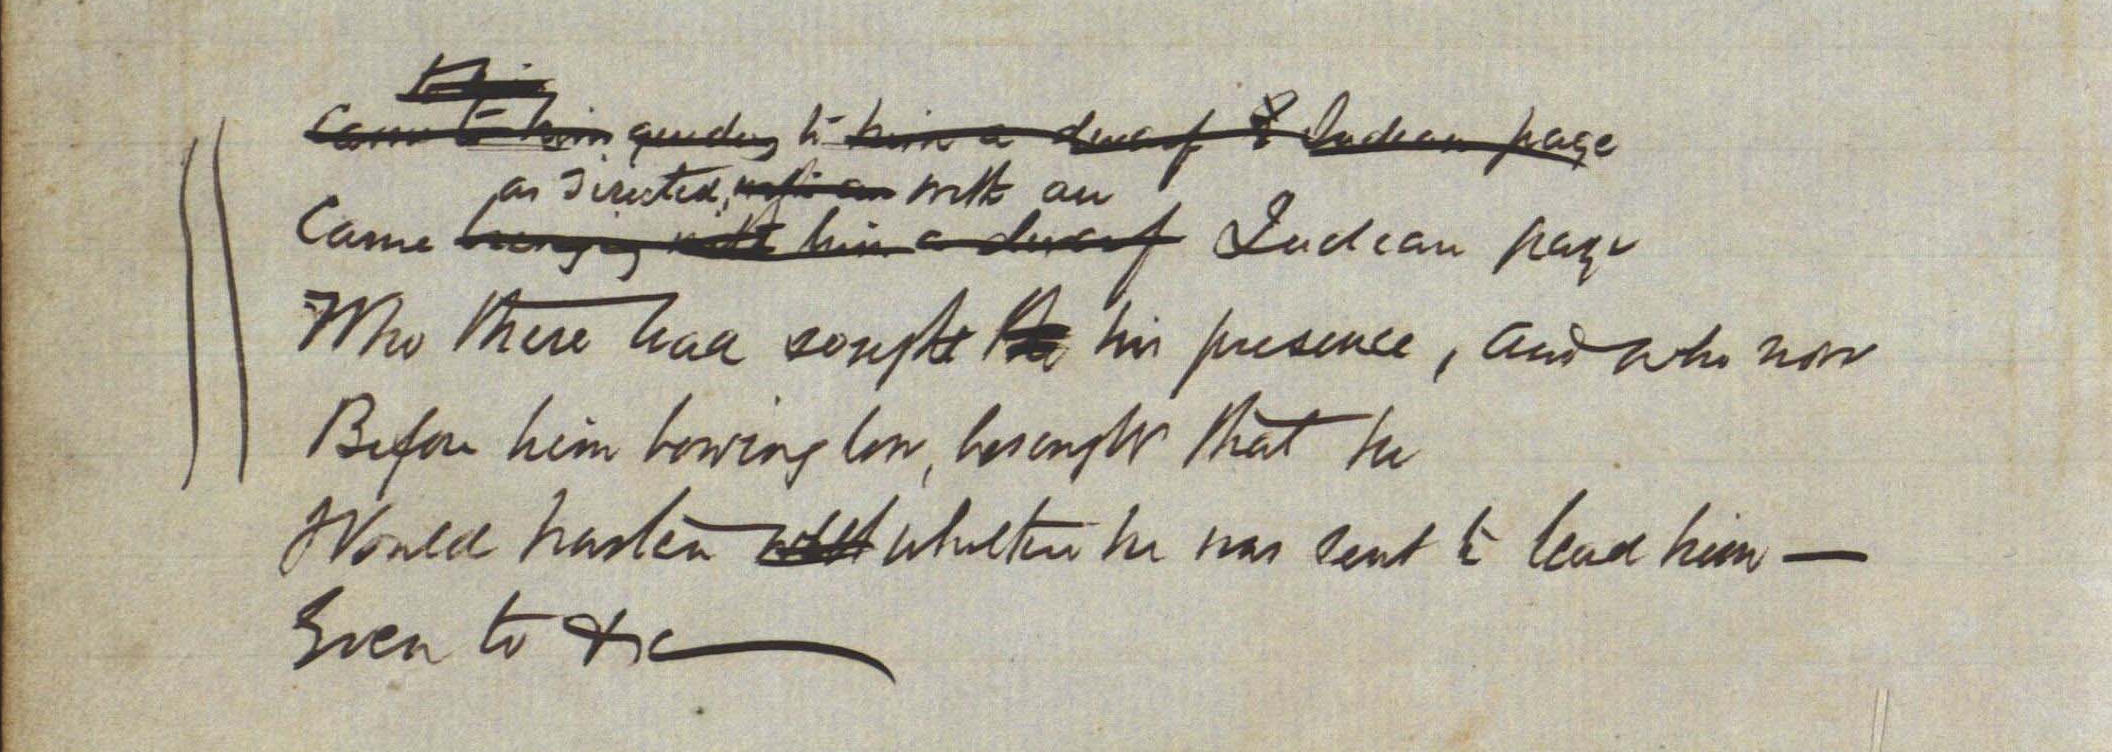 this
Came to him guiding to him a dwarf & Indian page
as directed, with an with an
Came bringing with him a dwarf Indian page
Who there had sought the his presence, and who now
Before him bowing low, besought that he
Would hasten whither he was sent to lead him —
Even to &c